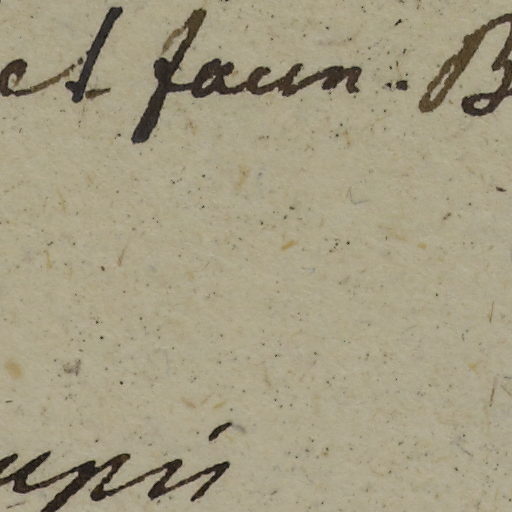 et faun. B
upii